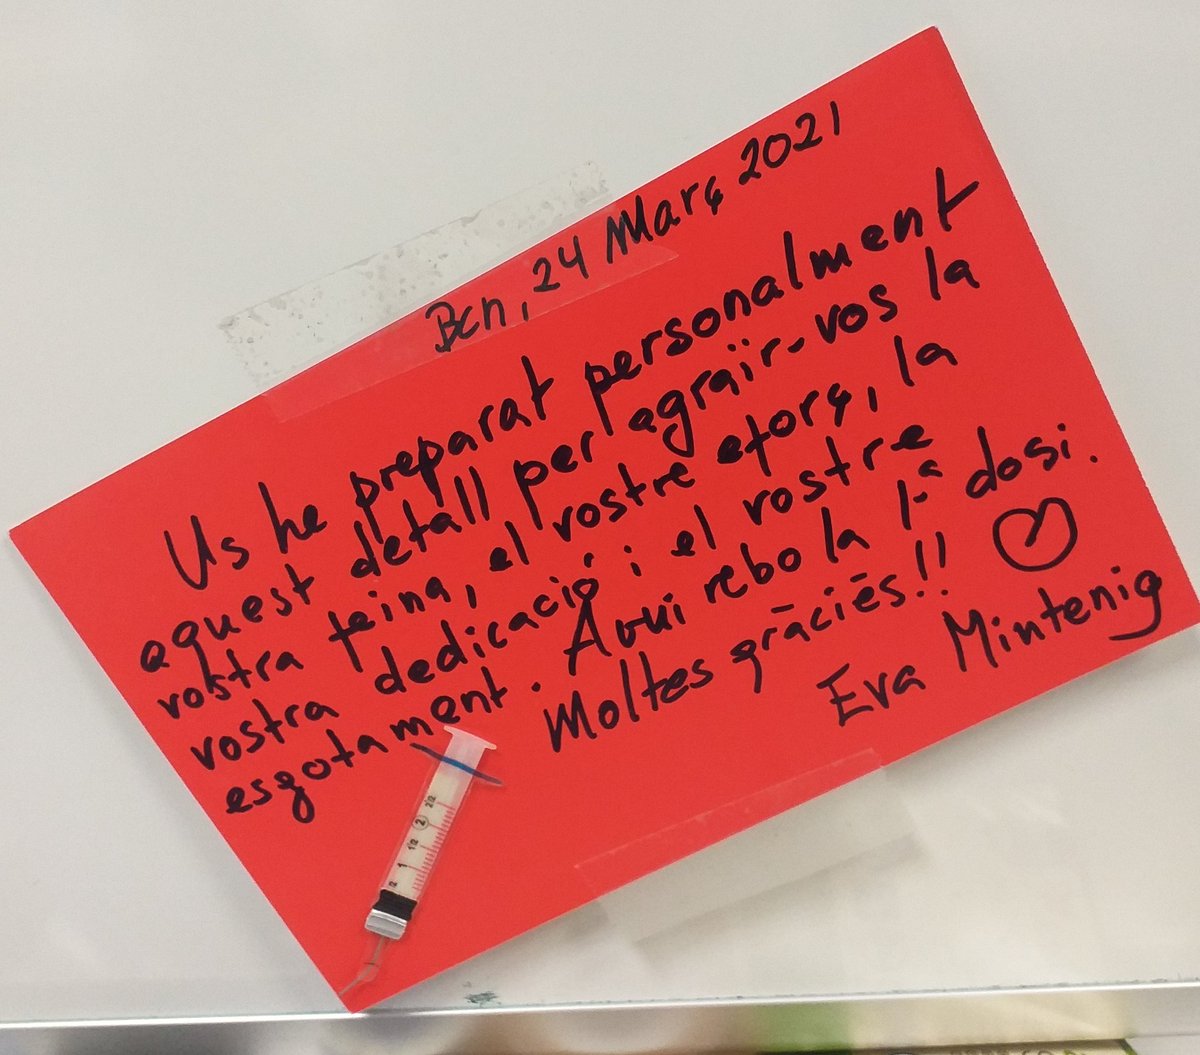 Bcn, 24 Març 2021
Us he preparat personalment
aquest detall per agraïr-vos la
vostra feina, el vostre eforç, la
vostra dedicació i el vostre
esgotament. Avui rebo la 1ª dosi.
Moltes gràcies!!
Eva Mintenig
2½
2
1½
1